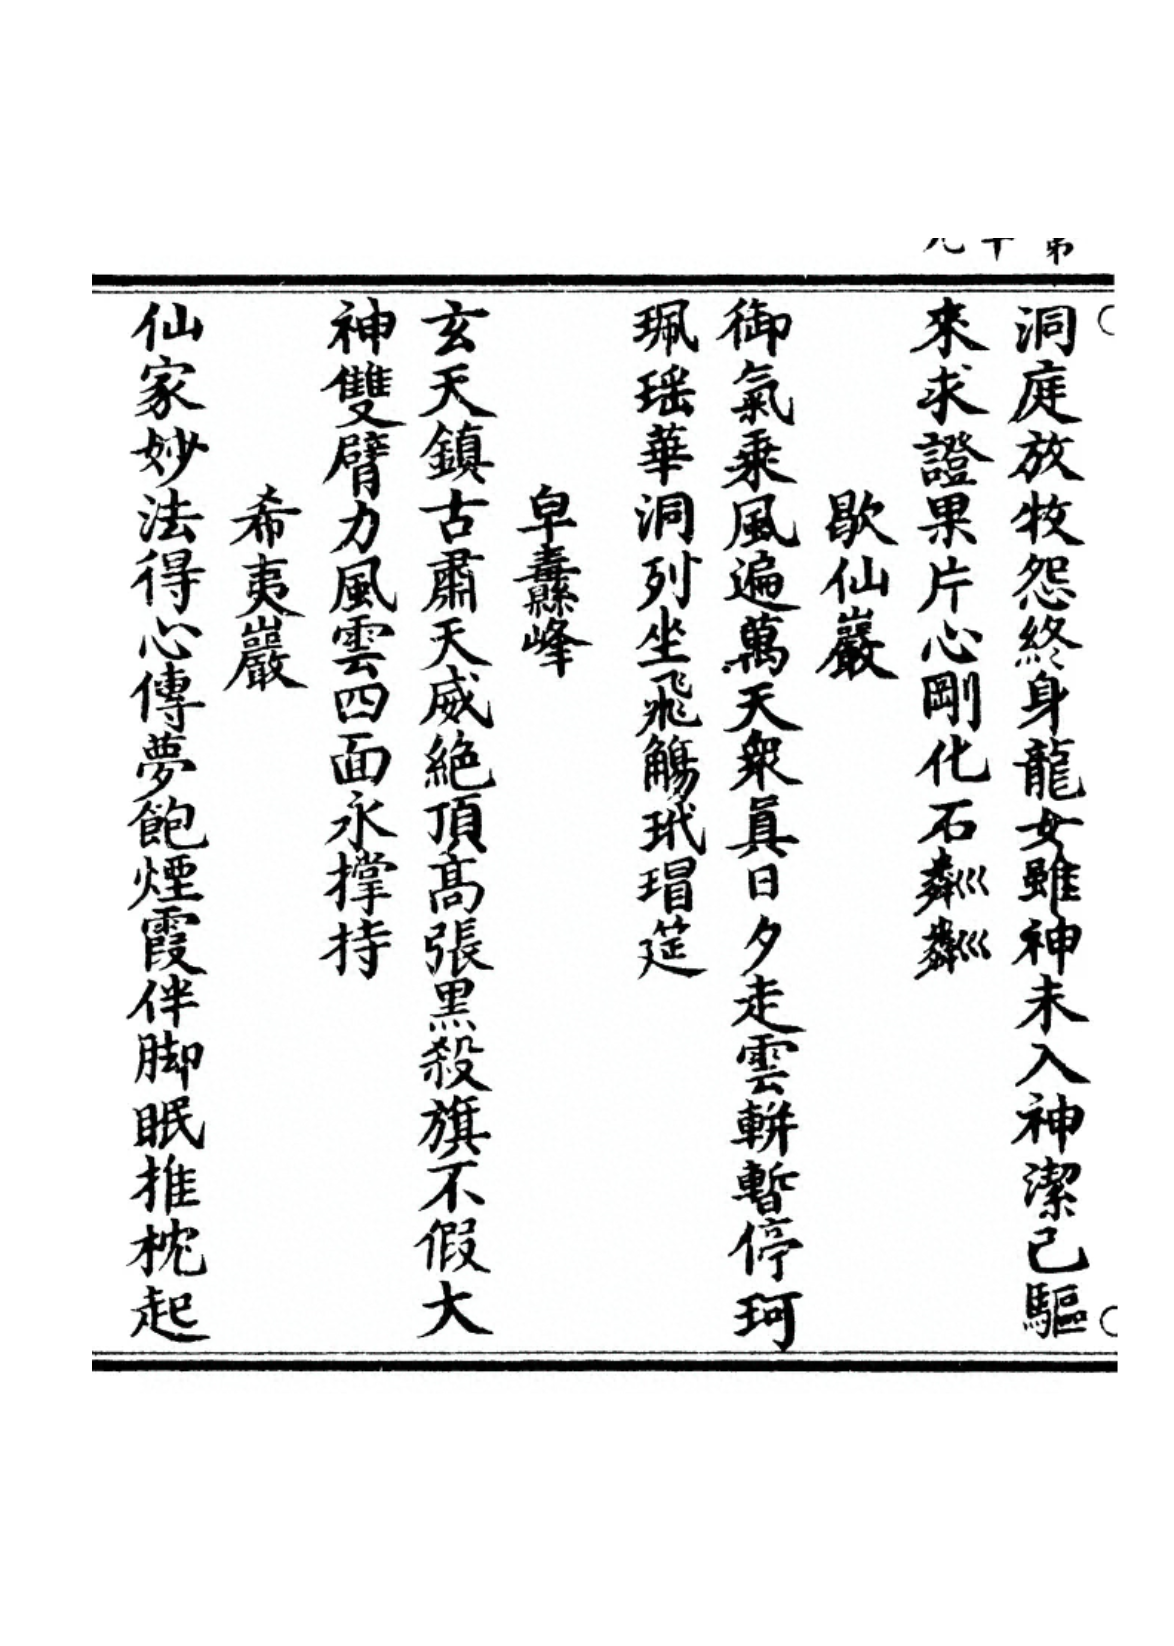 第十九
洞庭放牧怨終身龍女雖神未入神潔己驅
來求證果片心剛化石粼粼
歇仙巖
御氣乘風遍萬天衆眞日夕走雲輧暫停珂
珮瑶華洞列坐飛觴玳瑁筵
皁纛峰
玄天鎮古肅天威絶頂髙張黑殺旗不假大
神雙臂力風雲四面永撑持
希夷巖
仙家妙法得心傳夢飽煙霞伴脚眠推枕起